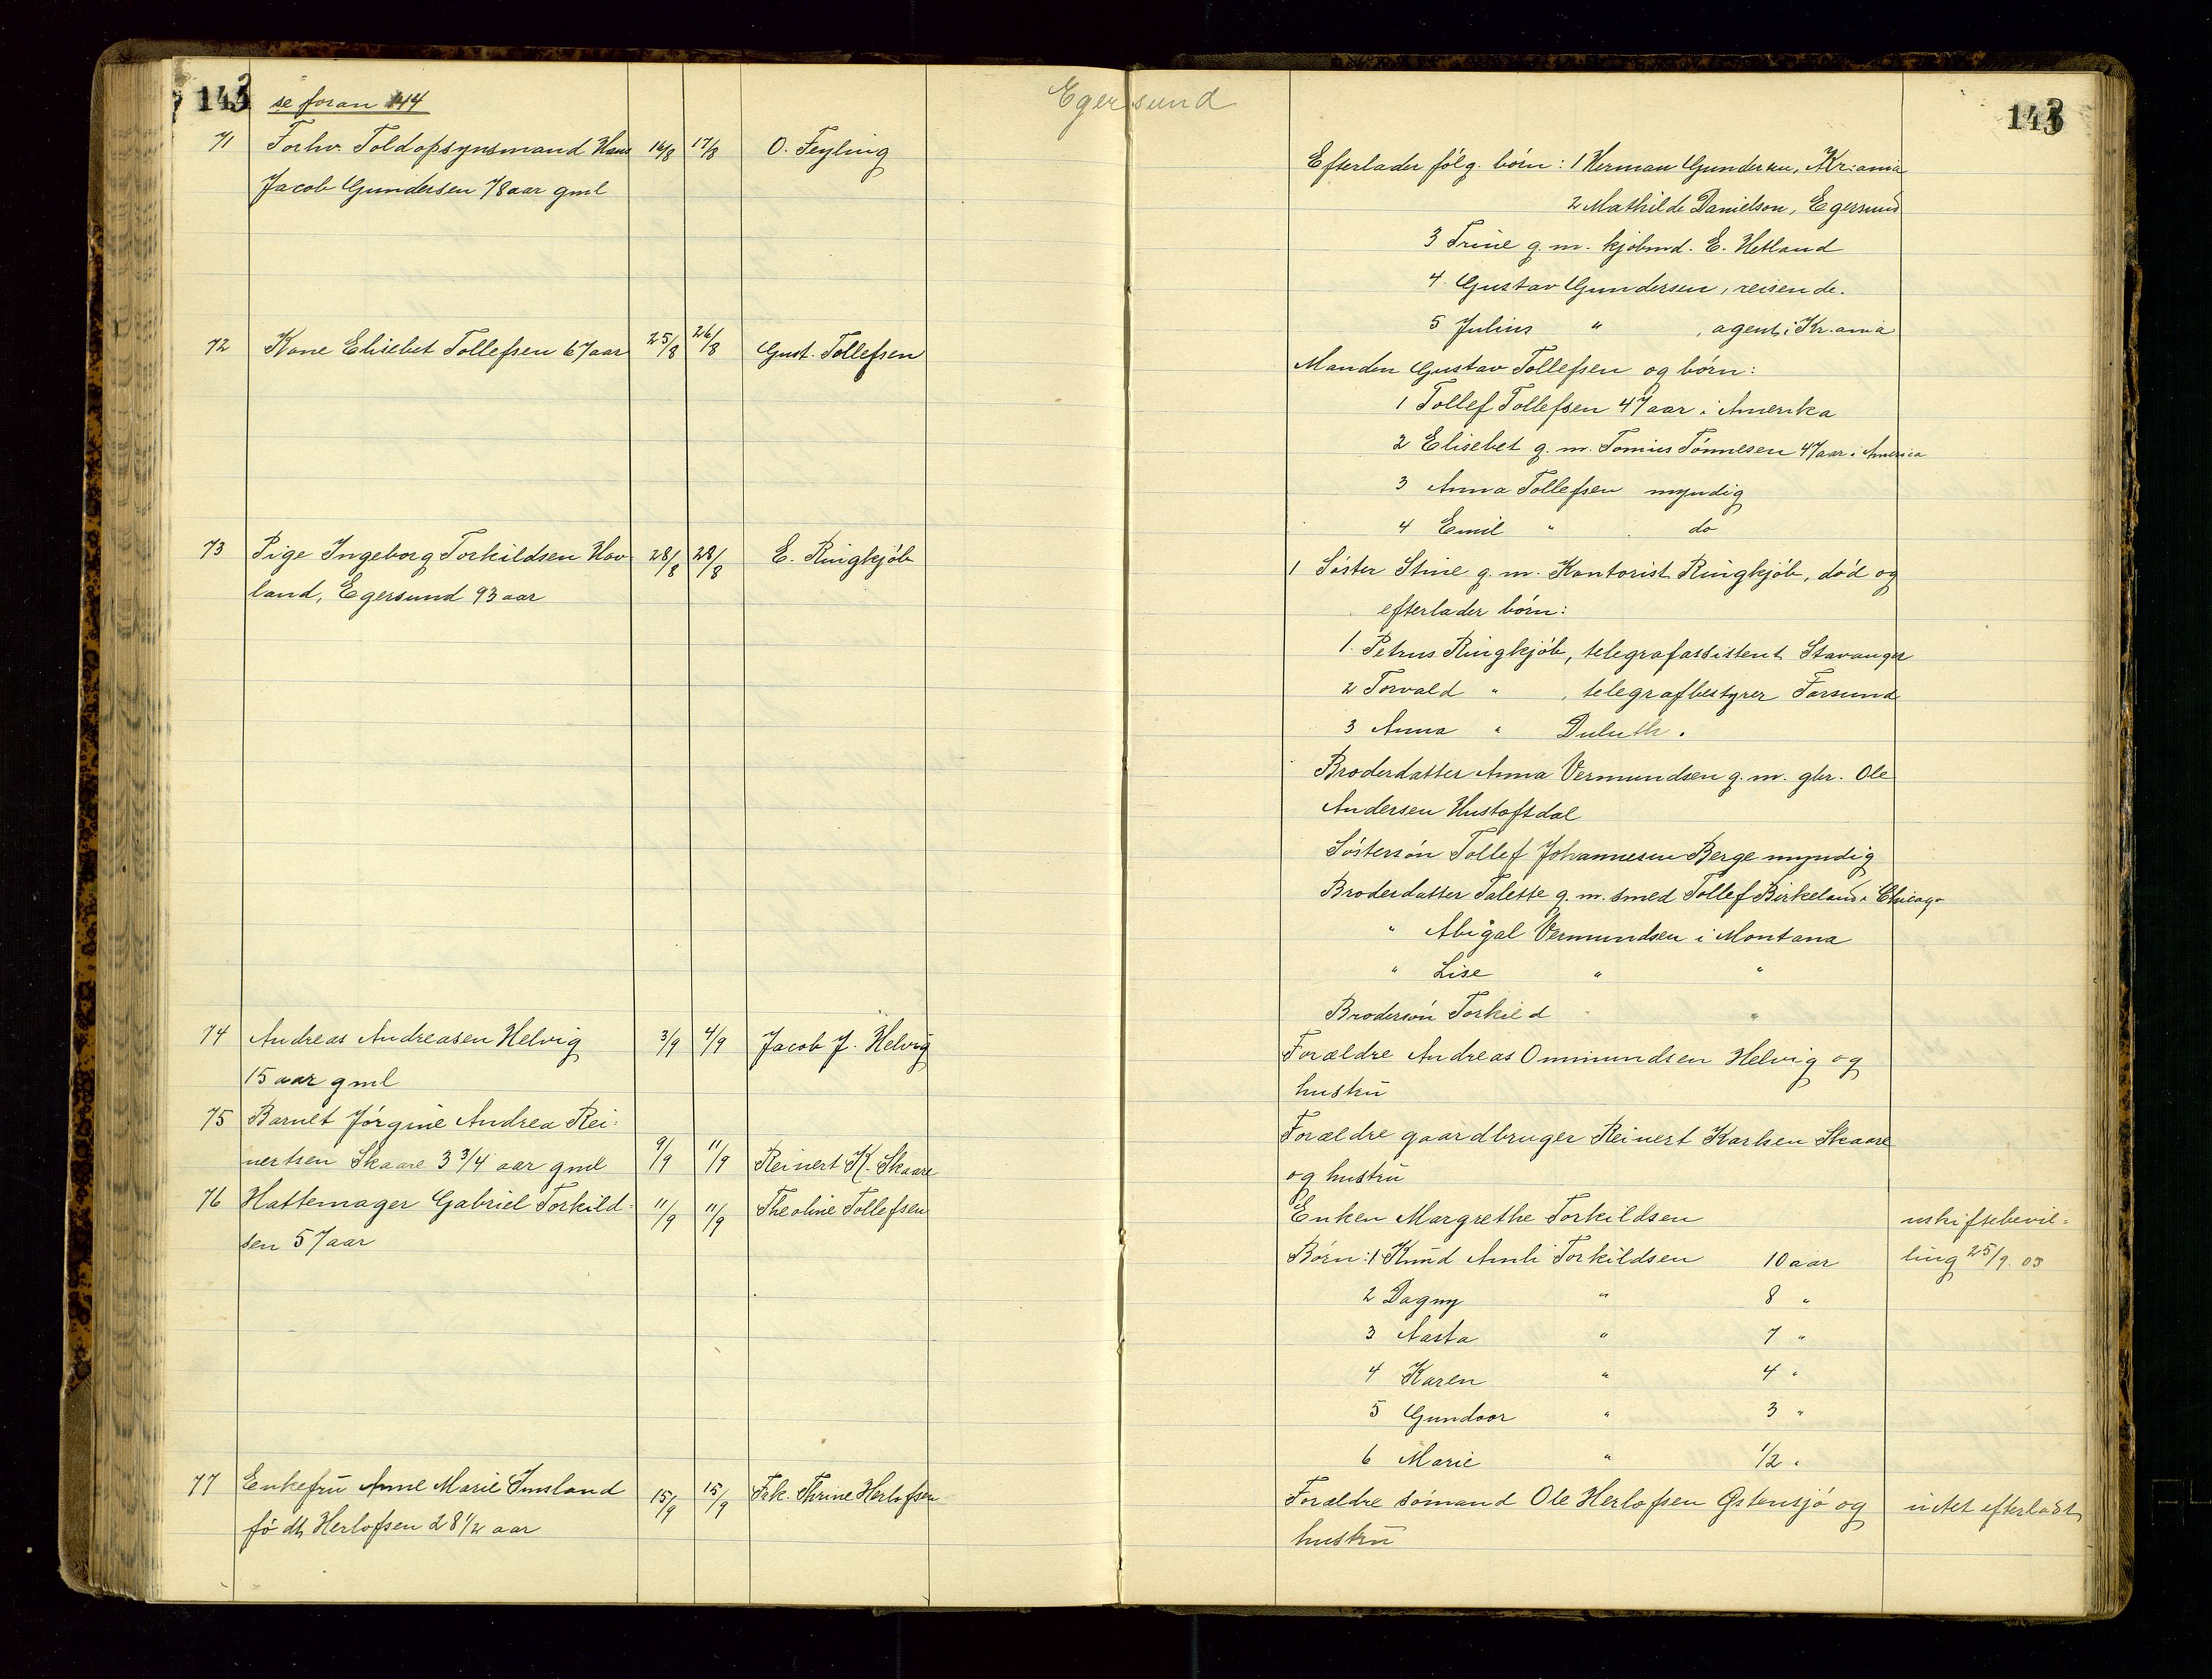 143 se foran 144
Egersund
143
71 Forhv. Toldopsynsmand Hans 16/8 17/8 O. Feyling
Jacob Gundersen 78 aar gml
Efterlader følg. børn: 1 Herman Gundersen, Kr:ania
2 Mathilde Danielson, Egersund
3 Trine g. m. kjøbmd. E. Hetland
4. Gustav Gundersen, reisende.
5 Julius " , agent i Kr.ania
72 Kone Elisebet Tollefsen 67 aar 25/8 26/8 Gust. Tollefsen
Manden Gustav Tollefsen og børn:
1 Tollef Tollefsen 47 aar i Amerika
2 Elisebet g. m. Tomius Tönnesen 47 aar i America
3 Anna Tollefsen myndig
4 Emil " do
73 Pige Ingeborg Torkildsen Hov- 28/8 28/8 E. Ringkjøb
land, Egersund 93 aar
1 Søster Stine g. m. Kontorist Ringkjøb, død og
efterlader børn:
1. Petrus Ringkjøb, telegrafassistent Stavanger
2 Torvald " , telegrafbestyrer Farsund
3 Anna " Duluth.
Broderdatter Anna Vermundsen g. m. gbr. Ole
Andersen Hustoftdal
Søstersøn Tollef Johannesen Berge myndig
Broderdatter Talette g. m. smed Tollef Birkeland i Chicago
" Abigal Vermundsen i Montana
" Lise " "
Brodersøn Torkild " "
74 Andreas Andreasen Helvig 3/9 4/9 Jacob J. Helvig
15 aar gml
Forældre Andreas Ommundsen Helvig og
hustru
75 Barnet Jørgine Andrea Rei:
nertsen Skaare 3 3/4 aar gml 9/9 11/9 Reinert K. Skaare
Forældre gaardbruger Reinert Karlsen Skaare
og hustru
76 Hattemager Gabriel Torkild- 11/9 11/9 Theoline Tollefsen
sen 57 aar
Enken Margrethe Torkildsen uskiftebevil=
Børn: 1 Knud Amli Torkildsen 10 aar ling 25/9. 03
2 Dagny " 8 "
3 Aasta " 7 "
4 Karen " 4 "
5 Gundvor " 3 "
6 Marie " 1/2 "
77 Enkefru Anne Marie Imsland 15/9 15/9 Frk. Thrine Herlofsen
født Herlofsen 28 1/2 aar
Forældre sømand Ole Herlofsen Østensjø og intet efterladt
hustru